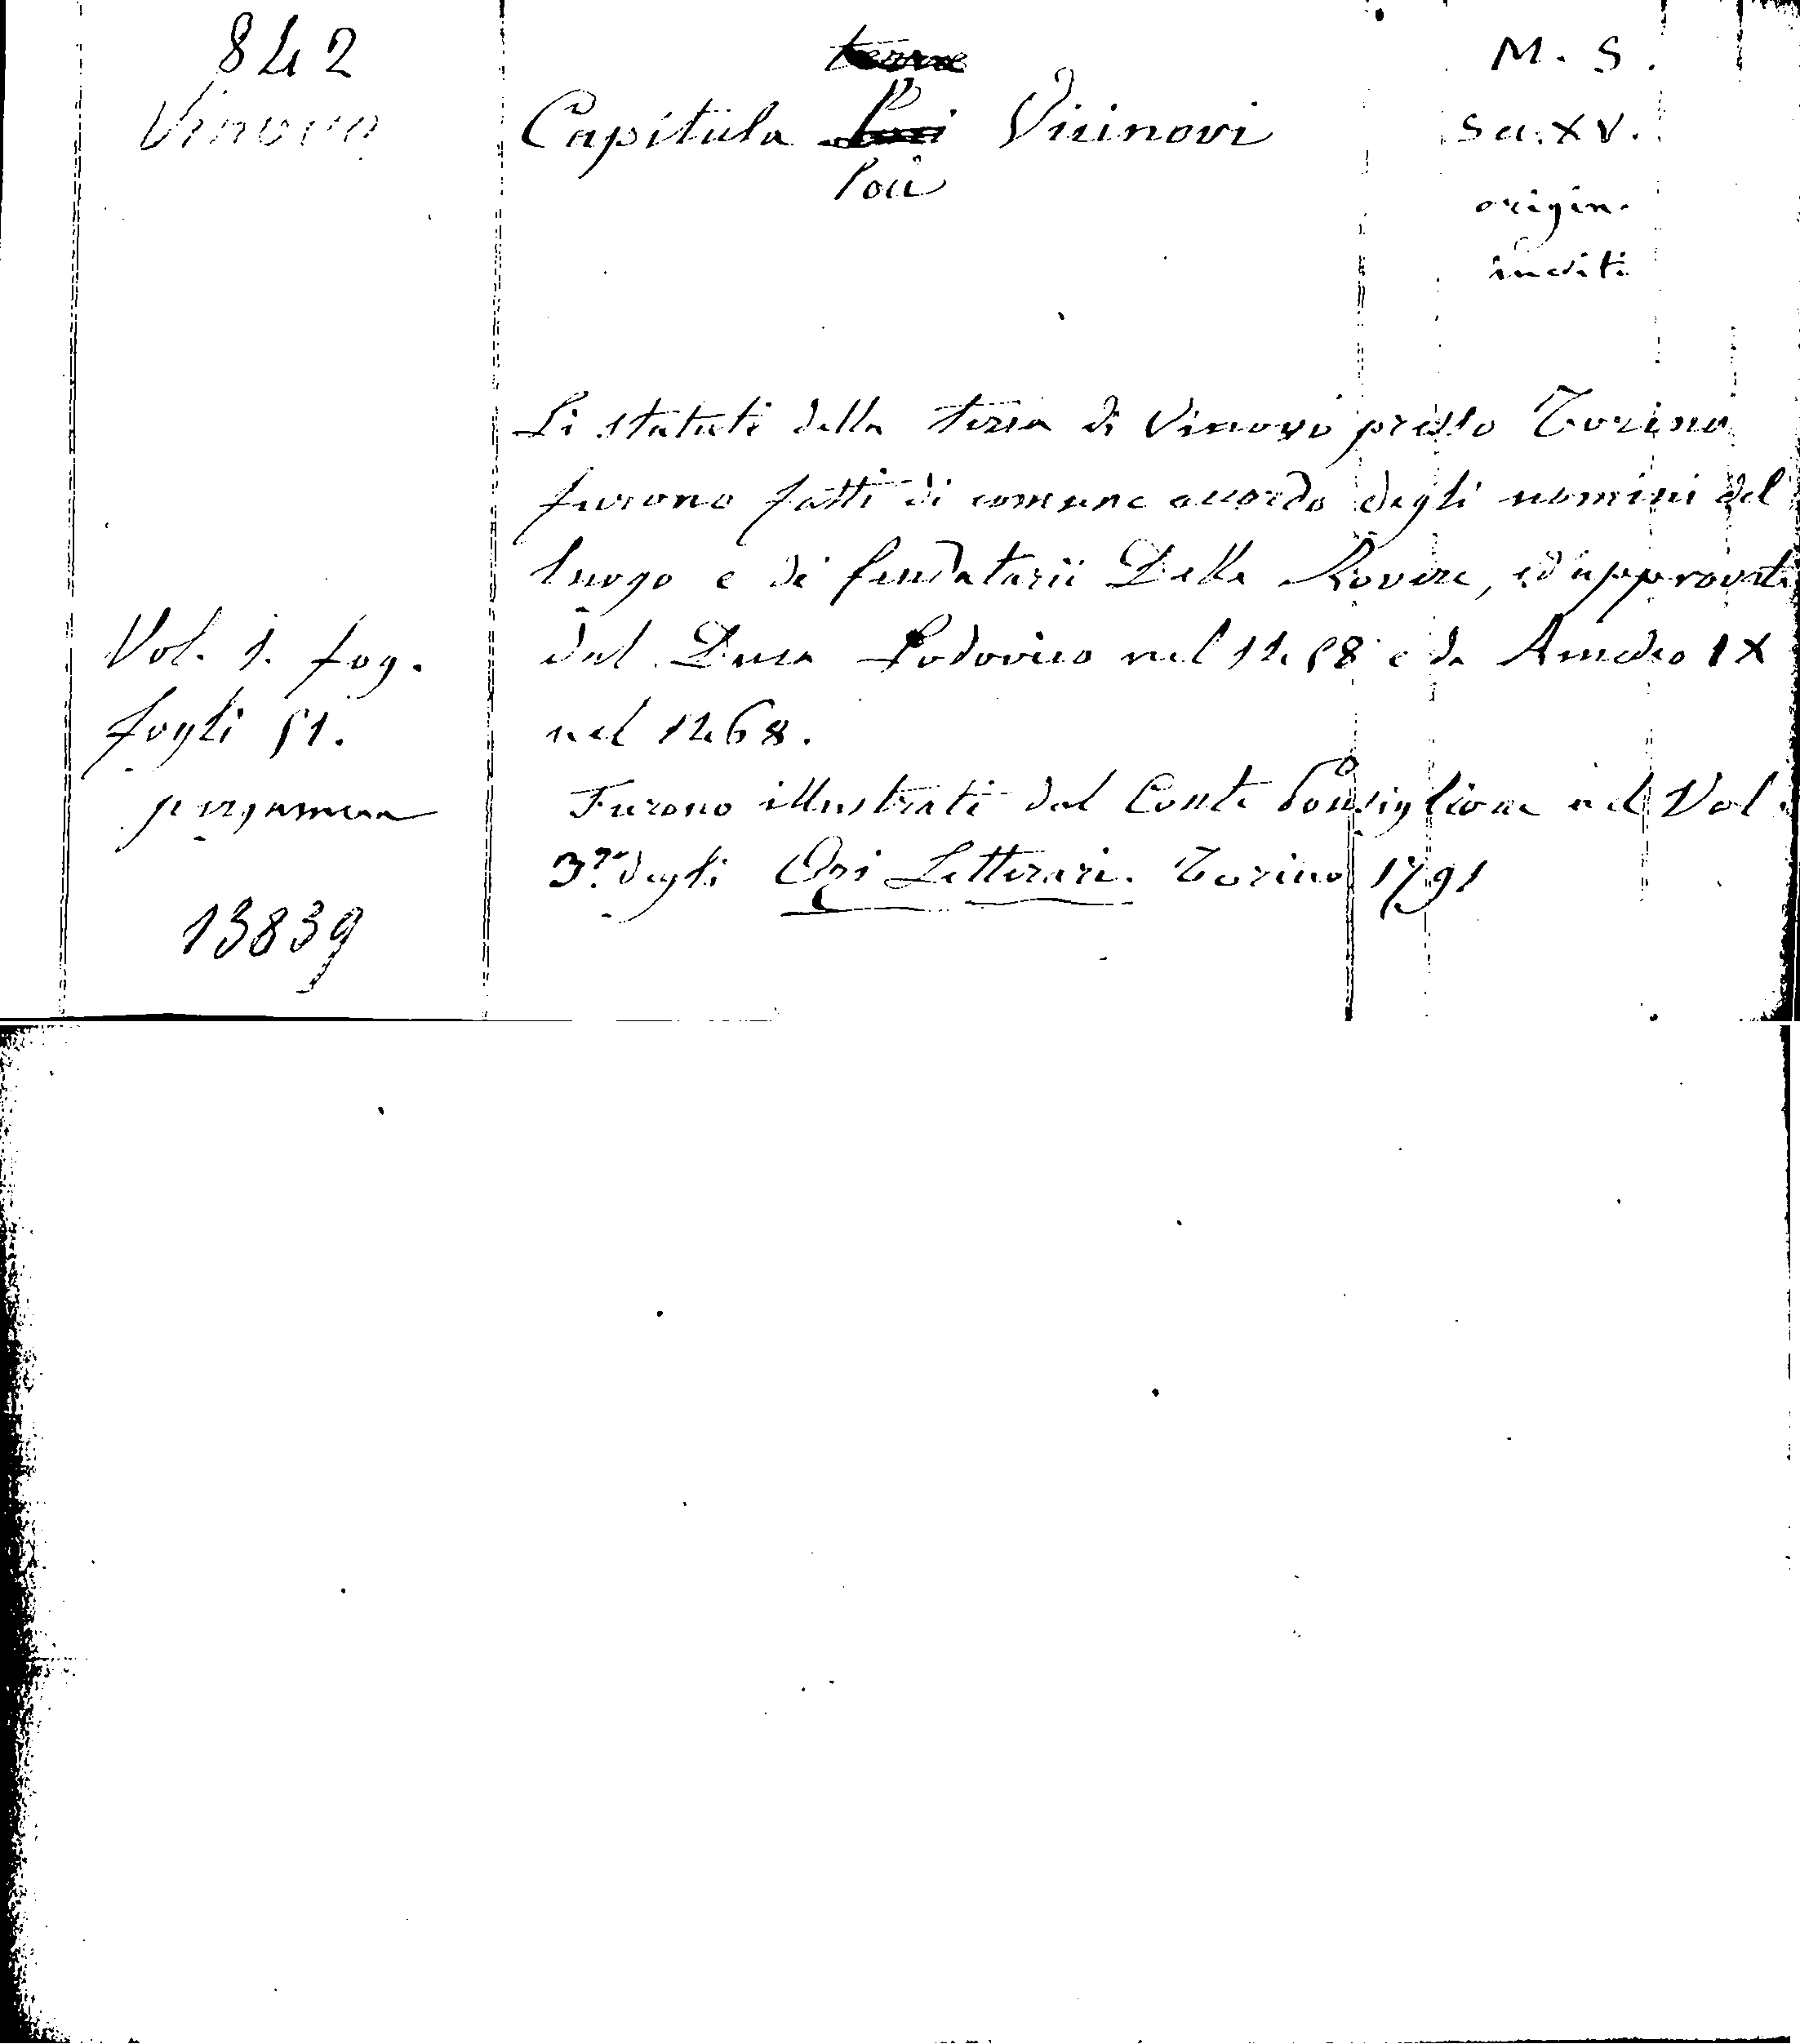 842
Vinovo
Vol. 1. fog.
fogli 51.
pergamena
13839
terre
Capitula Loci Vicinovi
Loci
Li statuti della terra di Vinovo presso Torino
furono fatti di comune accordo degli uomini del
luogo e di feudatarii Della Rovere, ed approvati
dal Duca Lodovico nel 1458 e da Amedeo IX
nel 1468.
Furono illustrati dal Conte Ponsiglione nel Vol.
3º degli Ozi Letterari. Torino 1791
M. S.
Sec. XV.
origin.
inediti